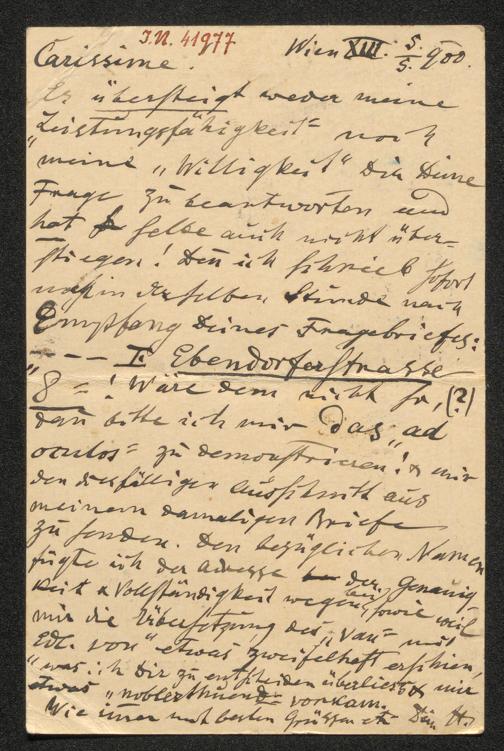 I.N. 41977
Wien XIII. 5./5. 900.
Carissime.
Es übersteigt weder meine
Leistungsfähigkeit noch
meine „Willigkeit" Dir Deine
Frage zu beantworten und
hat selbe auch nicht über-
stiegen! Den ich schrieb sofort
noch in derselben Stunde nach
Empfang Deines Fragebriefes:
– – – I Ebendorferstrasse
„8 = ! Wäre dem nicht so, (?)
dan bitte ich mir das „ad
oculos" zu demonstrieren! & mir
den diesfälligen Ausschnitt aus
meinem damaligen Briefe
zu senden. Den bezüglichen Namen
fügte ich der Adresse der Genauig-
keit & Vollständigkeit wegen bei, sowie weil
mir die Übersetzung des „Van" mit
Edl. von" etwas zweifelhaft erschien,
was ich Dir zu entscheiden überliess & mir
etwas vorkam.
Wie immer mit besten Grüssen etc Dein H.